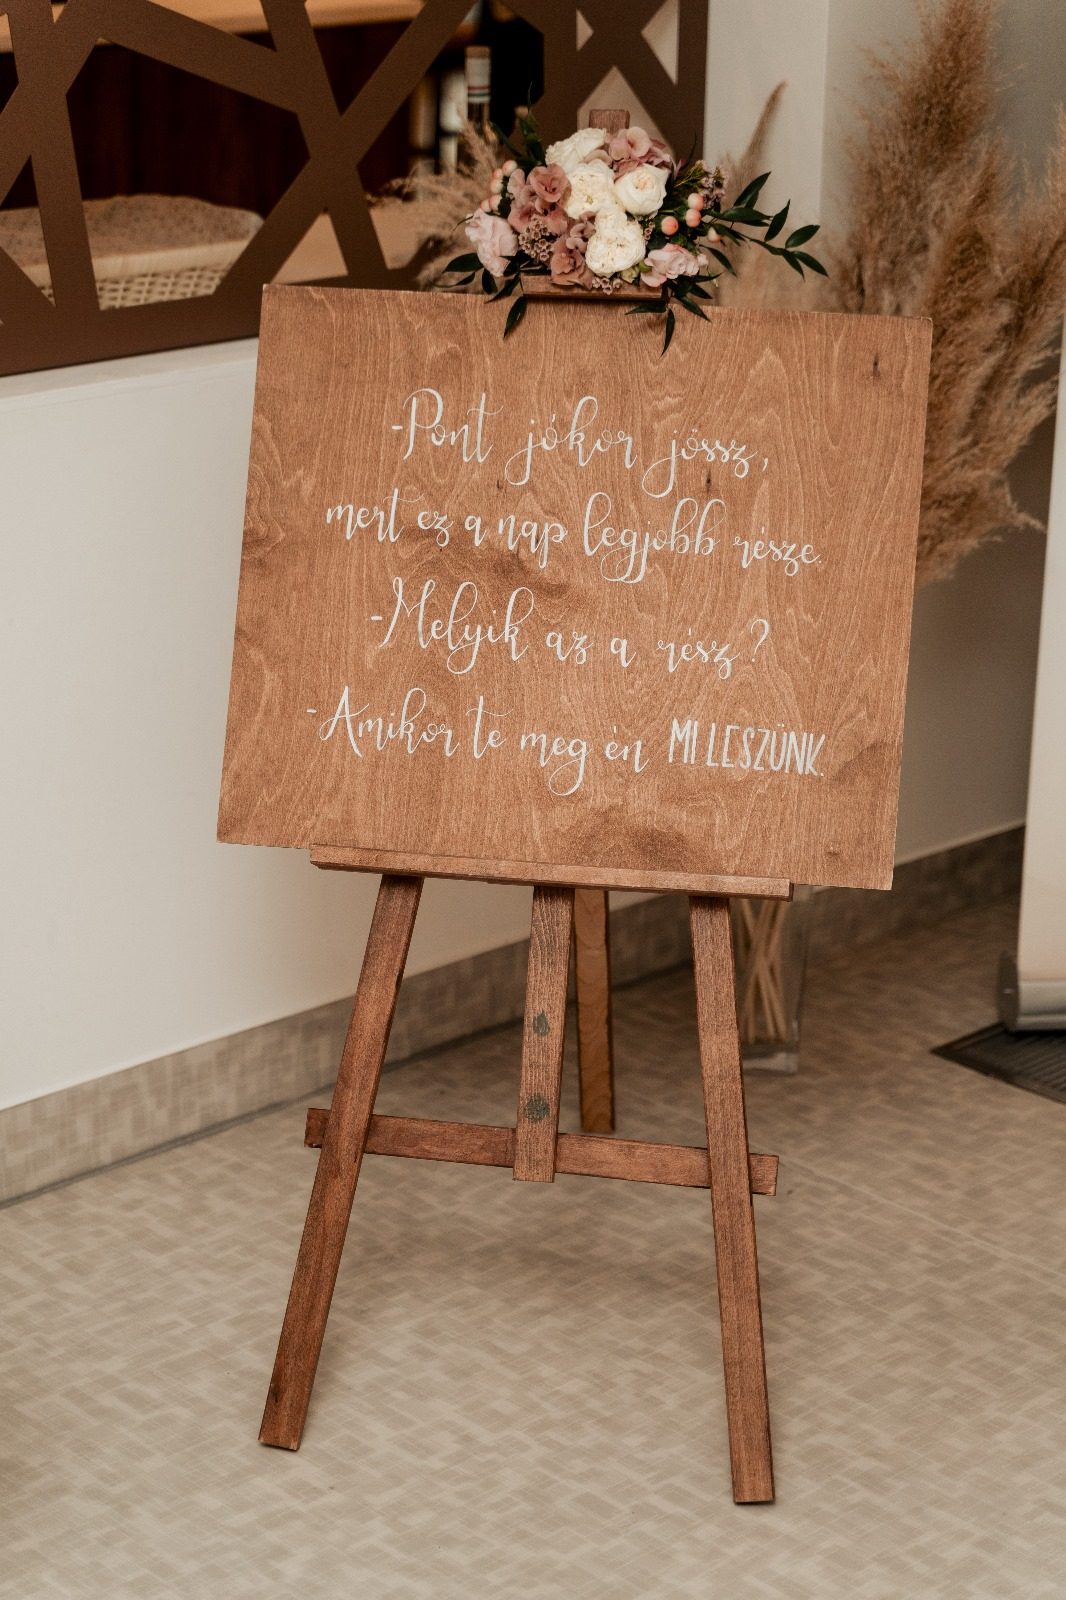 -Pont jókor jössz,
mert ez a nap legjobb része.
-Melyik az a rész?
-Amikor te meg én MI LESZÜNK.